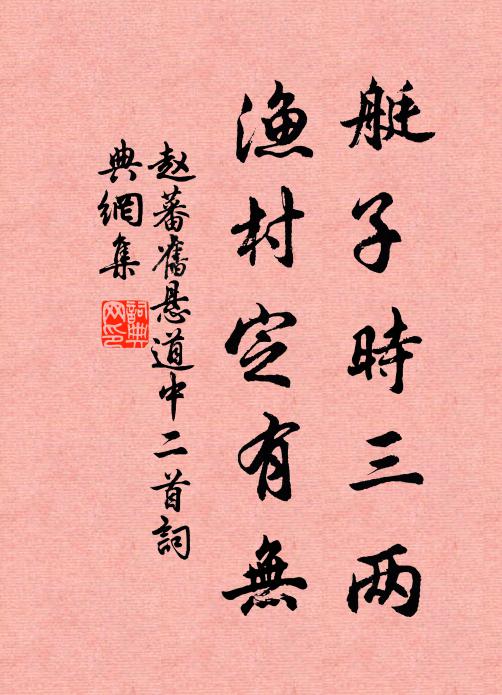 艇子時三两
漁村定有無
赵蕃舊悬道中二首詞
典網集
詞典
网印